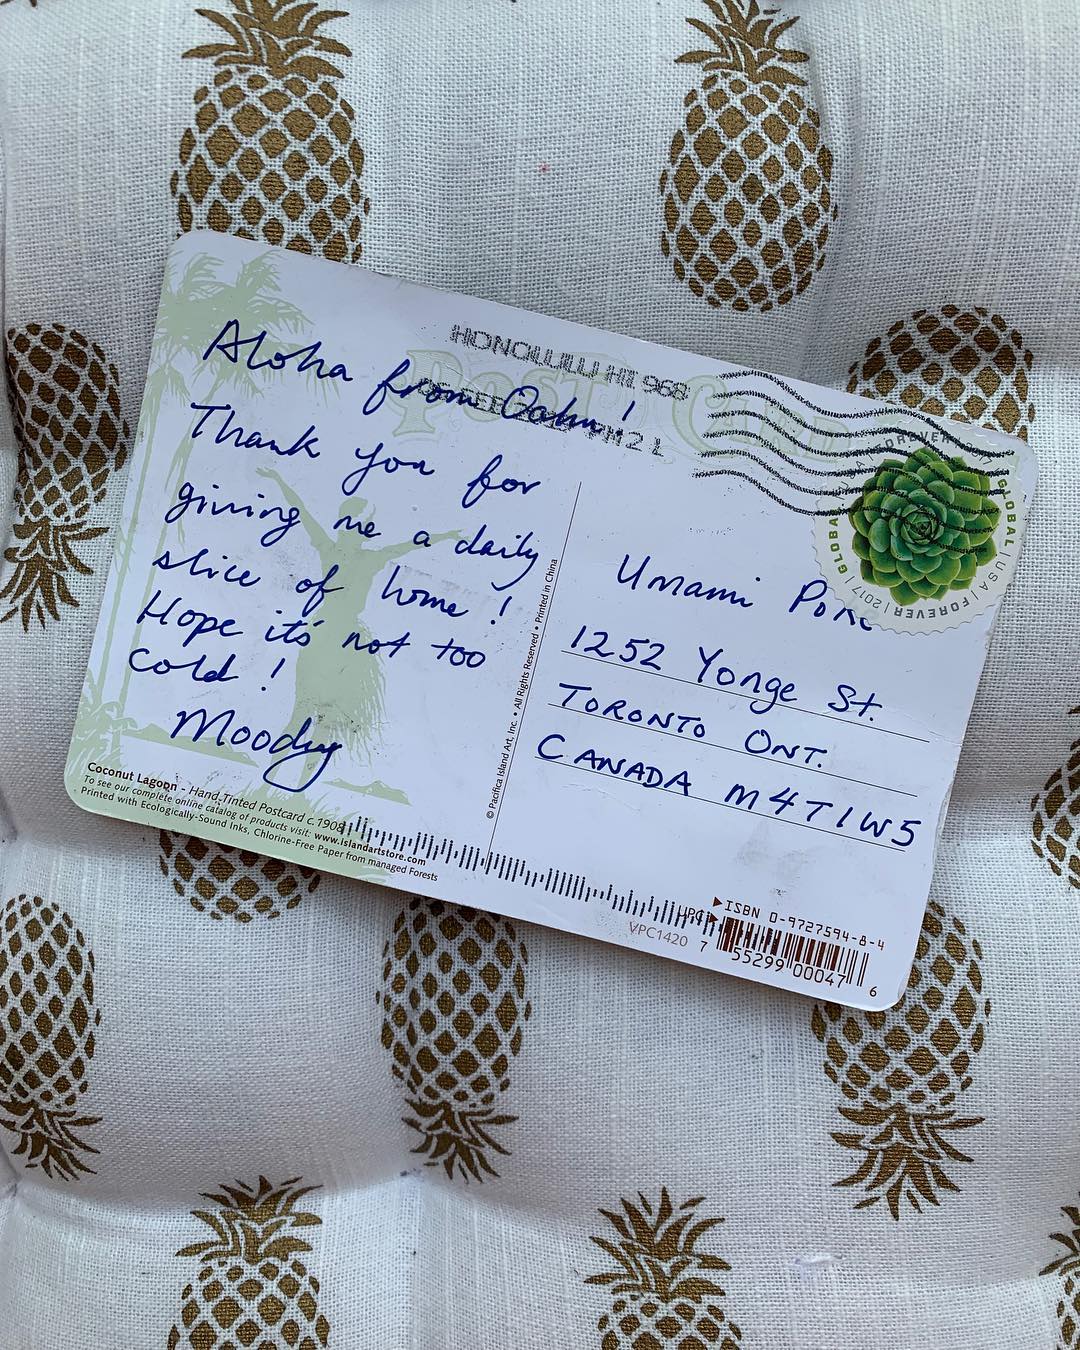 HONOLULU HI 968
PM 2 L
POST CARD
GLOBAL | USA | FOREVER | 2017
GLOBAL | USA | FOREVER | 2017
Aloha from Oahu!
Thank you for
giving me a daily
slice of home!
Hope it's not too
cold!
Moody
Umami Poke
1252 Yonge St.
TORONTO ONT.
CANADA M4T1W5
© Pacifica Island Art, Inc. • All Rights Reserved • Printed in China
Coconut Lagoon - Hand Tinted Postcard c.1908
To see our complete online catalog of products visit: www.islandartstore.com
Printed with Ecologically-Sound Inks, Chlorine-Free Paper from managed Forests
ISBN 0-9727594-8-4
UPC
VPC1420
7 55299 00047 6